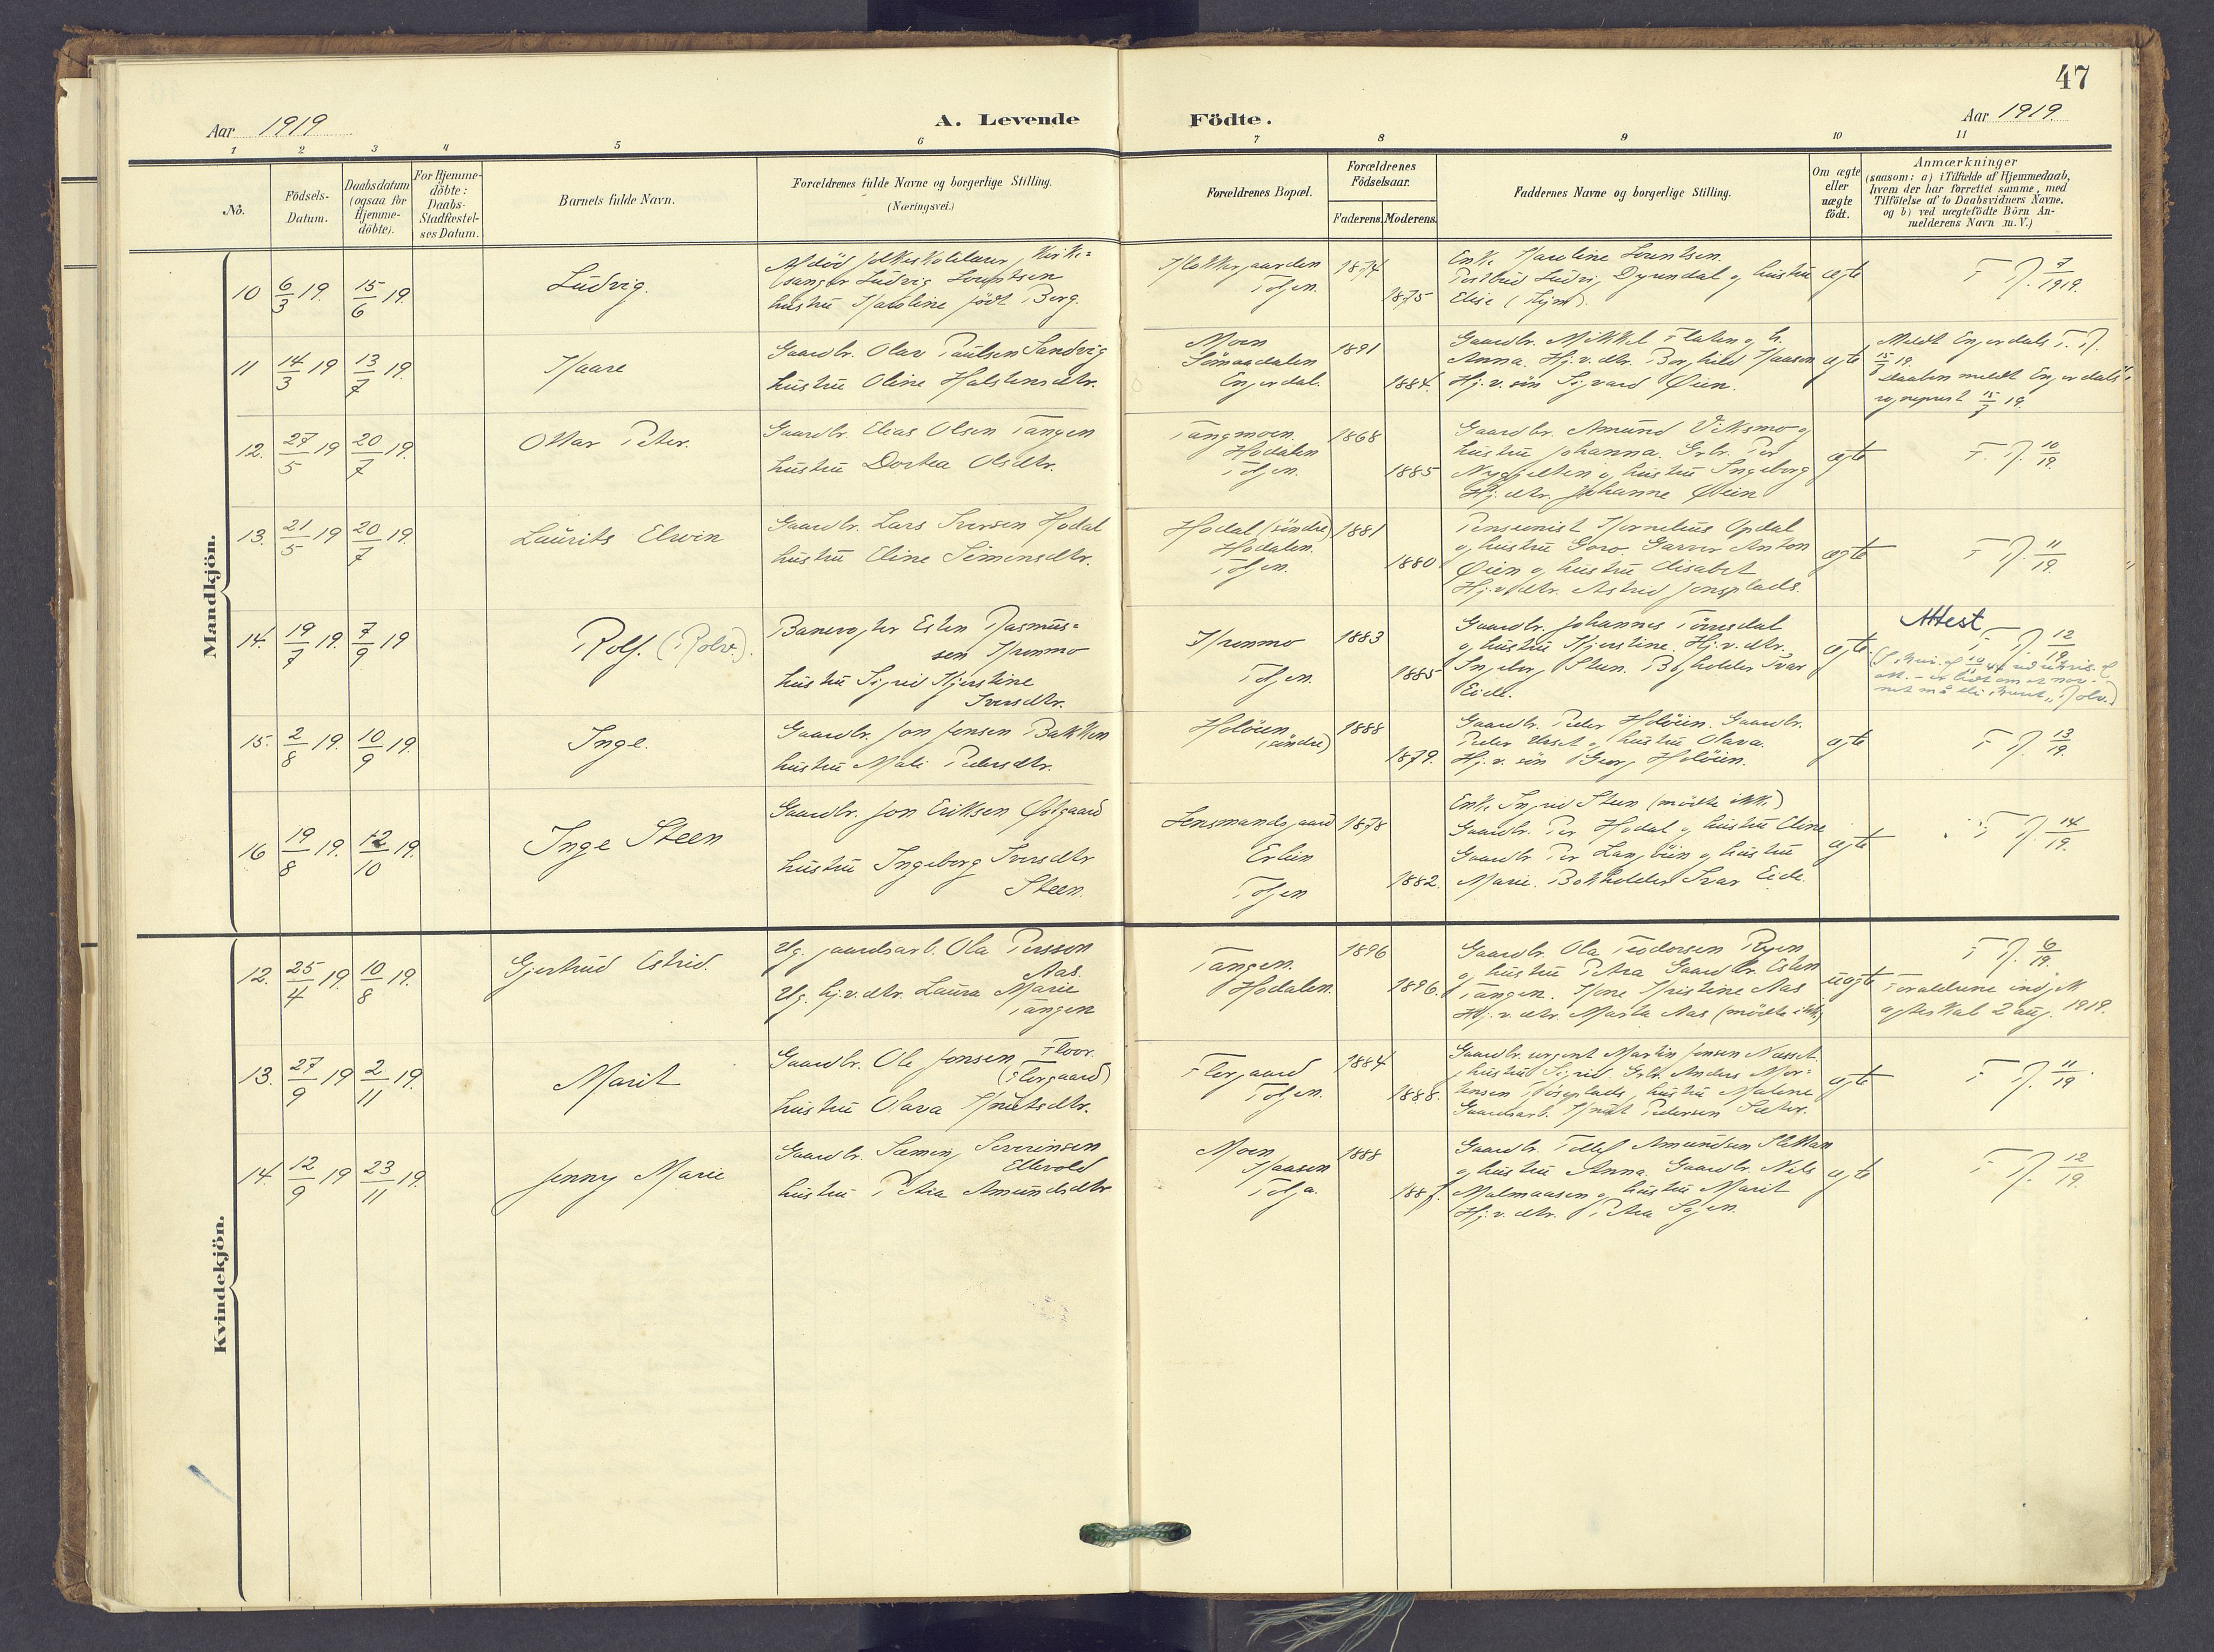 47
Aar 1919
A. Levende
Födte.
Aar 1919.
1 2 3 4 5 6 7 8 9 10 11
No.
Födsels-
Datum.
Daabsdatum
(ogsaa for
Hjemme-
döbte).
For Hjemme-
döbte:
Daabs-
Stadfæstel-
ses Datum.
Barnets fulde Navn.
Forældrenes fulde Navne og borgerlige Stilling.
(Næringsvei.)
Forældrenes Bopæl.
Forældrenes
Födselsaar.
Faderens. Moderens.
Faddernes Navne og borgerlige Stilling.
Om ægte
eller
uægte
födt.
Anmærkninger
(saasom: a) i Tilfælde af Hjemmedaab,
hvem der har forrettet samme, med
Tilföielse af to Daabsvidners Navne,
og b) ved uægtefödte Börn An-
melderens Navn m. V.)
Mandkjön.
10 6/3 19. 15/6 19. Ludvig.
Afdöd folkeskolelærer, kirke=
sanger Ludvig Lorentsen
hustru Karoline födt Berg.
Klokkergaarden
Tolgen.
1874
1875
Enke Karoline Lorentsen.
Postbud Ludvig Dyrendal og hustru
Elise
ægte
F. R. 7/1919.
11 14/3 19 13/7 19. Kaare
Gaardbr. Olav Paulsen Sandvig
hustru Oline Halstensdtr.
Moen
Sömaadalen
Engerdal.
1891
1884.
Gaardbr. Mikkel Flaten og h.
Anna. Hj. v. dtr. Borghild Kaasen
Hj. v. sön Sigvard Öien.
ægte
Meldt Engerdals F. R.
15/7 19.
Daaben meldt Engerdals
sogneprest 15/7 19.
12. 27/5 19 20/7 19. Ottar Peter.
Gaardbr. Elias Olsen Tangen
hustru Dortea Olsdtr.
Tangmoen.
Hodalen
Tolgen.
1868
1885
Gaardbr. Amund Viksmo og
hustru Johanna. Grbr. Per
og hustru Ingeborg
Hj. dtr. Johanne Öien
ægte
F. R. 10/19.
13. 21/5 19 20/7 19. Laurits Elwin
Gaardbr. Lars Iversen Hodal
hustru Eline Simensdtr.
Hodal (söndre)
Hodalen.
Tolgen.
1881
1880
Pensionist Kornelius Opdal
og hustru Goro. Garver Anton
Öien og hustru Elisabet
Hj. v. dtr. Astrid Jonsplads.
ægte
F. R. 11/19.
14. 19/7 19. 7/9 19 Rolf. (Rolv.).
Banevogter Esten Rasmus=
sen Kronmo
hustru Sigrid Kjerstine
Iversdtr.
Kronmo
Tolgen.
1883
1885
Gaardbr. Johannes Törresdal
og hustru Kjerstine. Hj. v. dtr.
Ingeborg Steen. Bogholder Ivar
Eide.
ægte.
Attest
F. R. 12/19.
15. 2/8 19. 10/9 19. Inge.
Gaardbr. Jon Jonsen Bakken
hustru Mali Pedersdtr.
Holöien
(söndre)
1888
1879.
Gaardbr. Peder Holöien. Gaardbr.
Peder Urset og hustru Olava.
Hj. v. sön Georg Holöien.
ægte
F R. 13/19.
16 19/8 19. 12/10 19. Inge Steen
Gaardbr. Jon Eriksen Östgaard
hustru Ingeborg Iversdtr
Steen.
Lensmandsgaard
Erlien
Tolgen
1878
1882.
Enke Ingrid Steen (mödte ikke)
Gaardbr. Per Hodal og hustru Eline
Gaardbr. Per Langöien og hustru
Marie. Bokholder Ivar Eide.
ægte
F R. 14/19.
Kvindekjön.
12. 25/4 19. 10/8 19. Gjertrud Estrid.
Ug. gaardsarb. Ola Persson
Aas.
Ug. hj. v. dtr. Laura Marie
Tangen
Tangen.
Hodalen.
1896
1896.
Gaardbr. Ola Pedersen Ryen
og hustru Petra Gaardbr. Esten
Tangen. Kone Kristine Aas
Hj. v. dtr. Marta Aas (mödte ikke)
uægte
F R. 6/19.
Forældrene indgik
egteskab 2 aug. 1919.
13. 27/9 19 2/11 19. Marit
Gaardbr. Ole Jonsen Floor.
(Florgaard)
hustru Olava Knutsdtr.
Florgaard
Tolgen.
1884
1888.
Gaardbr. sergent Martin Jonsen Næsset
og hustru Sigrid Grbr. Anders Mor=
tensen hustru Malene
Gaardsarb. Knut Pedersen Sæter.
ægte
F R. 11/19.
14. 12/9 19 23/11 19. Jenny Marie
Gaardbr. Sæming Severinsen
Ellevold
hustru Petra Amundsdtr
Moen
Kaasen
Tolga.
1888
1887.
Gaardbr. Tollef Amundsen
og hustru Anna. Gaardbr. Nils
Malmaasen og hustru Marit
Hj. v. dtr. Petra
ægte
F R. 12/19.